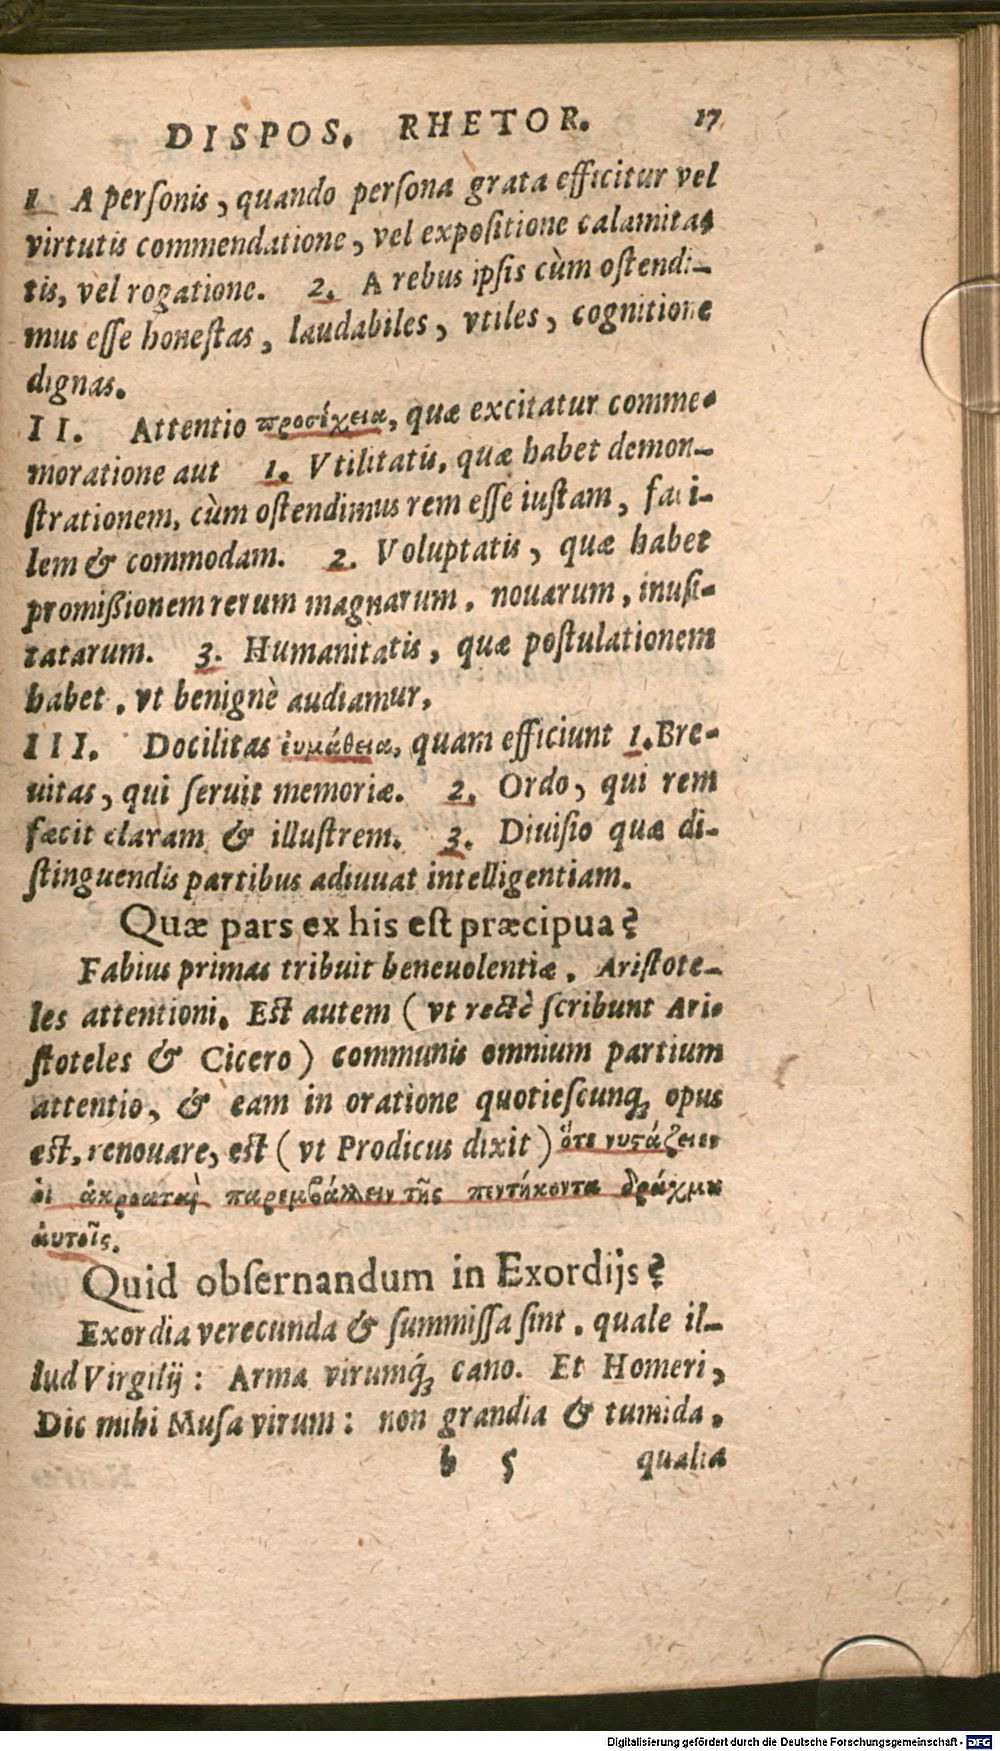 DISPOS. RHETOR. 17
1 A perſonis, quando perſona grata efficitur vel
virtutis commendatione, vel expoſitione calamita-
tis, vel rogatione. 2. A rebus ipſis cùm oſtendi-
mus eſſe honeſtas, laudabiles, vtiles, cognitione
dignas.
II. Attentio προσέχεια, quæ excitatur comme-
moratione aut 1. Vtilitatis, quæ habet demon-
ſtrationem, cùm oſtendimus rem eſſe iuſtam, faci-
lem & commodam. 2. Voluptatis, quæ habet
promißionem rerum magnarum, nouarum, inuſi-
tatarum. 3. Humanitatis, quæ poſtulationem
habet, vt benignè audiamur.
III. Docilitas ἐυμάθεια, quam efficiunt 1. Bre-
uitas, qui ſeruit memoriæ. 2. Ordo, qui rem
facit claram & illuſtrem. 3. Diuiſio quæ di-
ſtinguendis partibus adiuuat intelligentiam.
Quæ pars ex his eſt præcipua?
Fabius primas tribuit beneuolentiæ, Ariſtote-
les attentioni. Eſt autem (vt rectè ſcribunt Ari-
ſtoteles & Cicero) communis omnium partium
attentio, & eam in oratione quotieſcunq; opus
eſt, renouare, eſt (vt Prodicus dixit) ὅτε νυστάζειεν
οἱ ἀκροαταὶ παρεμβάλλειν τῆς πεντήκοντα δράχμυ
ἀυτοῖς.
Quid obſernandum in Exordijs?
Exordia verecunda & ſummiſſa ſint, quale il-
lud Virgilij: Arma virumq́; cano. Et Homeri,
Dic mihi Muſa virum: non grandia & tumida,
b 5 qualia
Digitalisierung gefördert durch die Deutsche Forschungsgemeinschaft - DFG